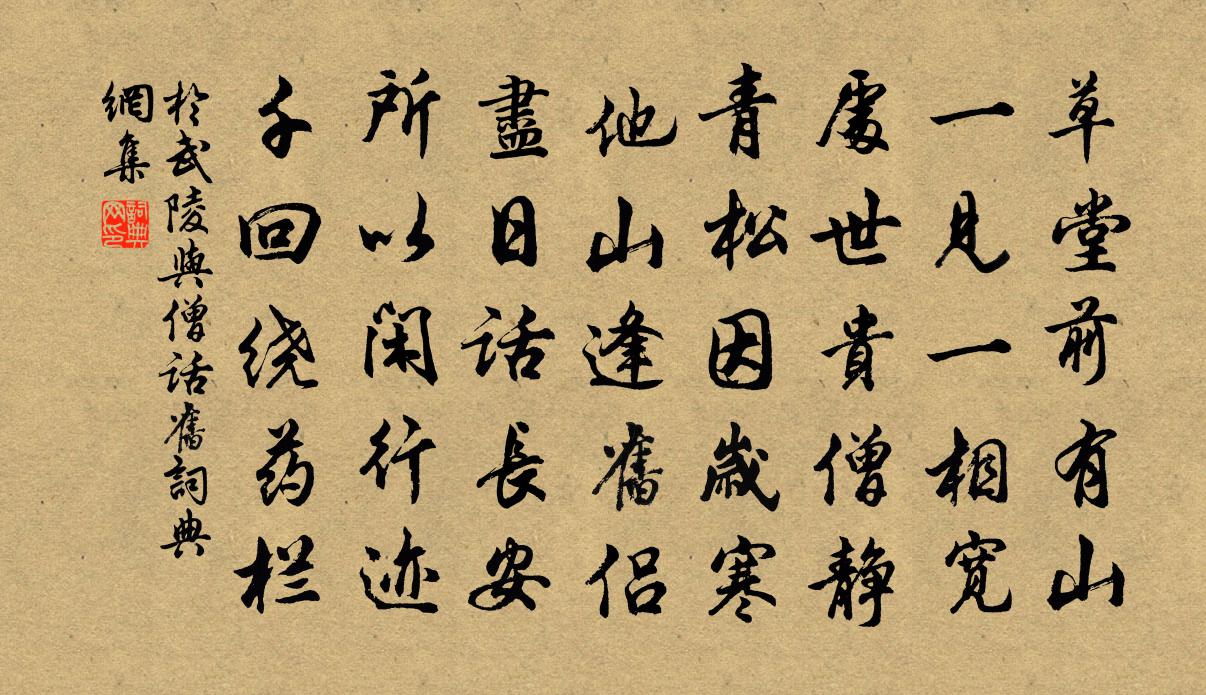 草堂前有山
一見一相寬
處世貴僧靜
青松因歲寒
他山逢舊侣
盡日话長安
所以閑行迹
千回绕药栏
於武陵與僧话舊詞典
網集
詞典网印